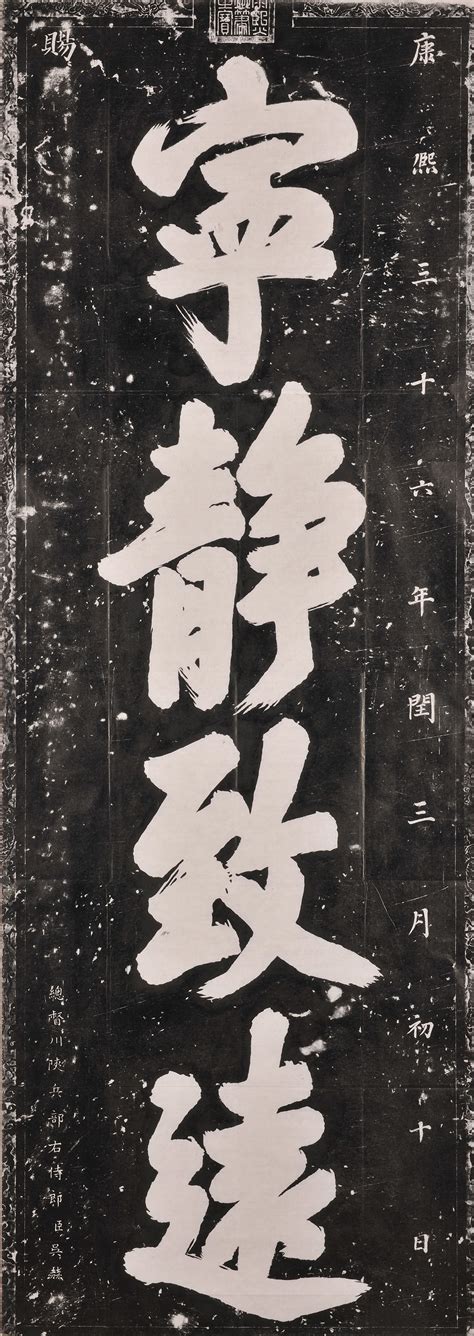 康熙御筆之寶
康熙三十六年閏三月初十日
寧静致遠
賜
總督川陝兵部右侍郎臣吳赫